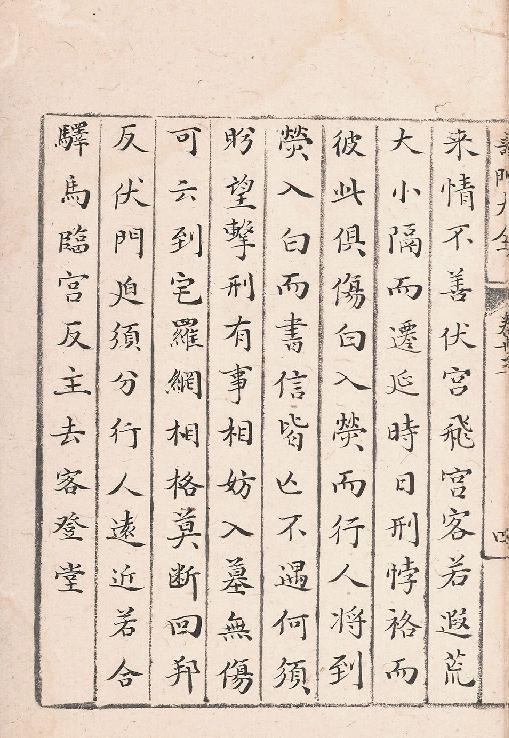 来情不善伏宫飛宫客若遐荒
大小隔而遷延時日刑悖格而
彼此俱傷白入熒而行人将到
熒入白而書信皆亡不遇何須
盻望擊刑有事相妨入墓無傷
可云到宅羅網相格莫断回邦
反伏門迫須分行人遠近若合
驛馬臨宫反主去客登堂